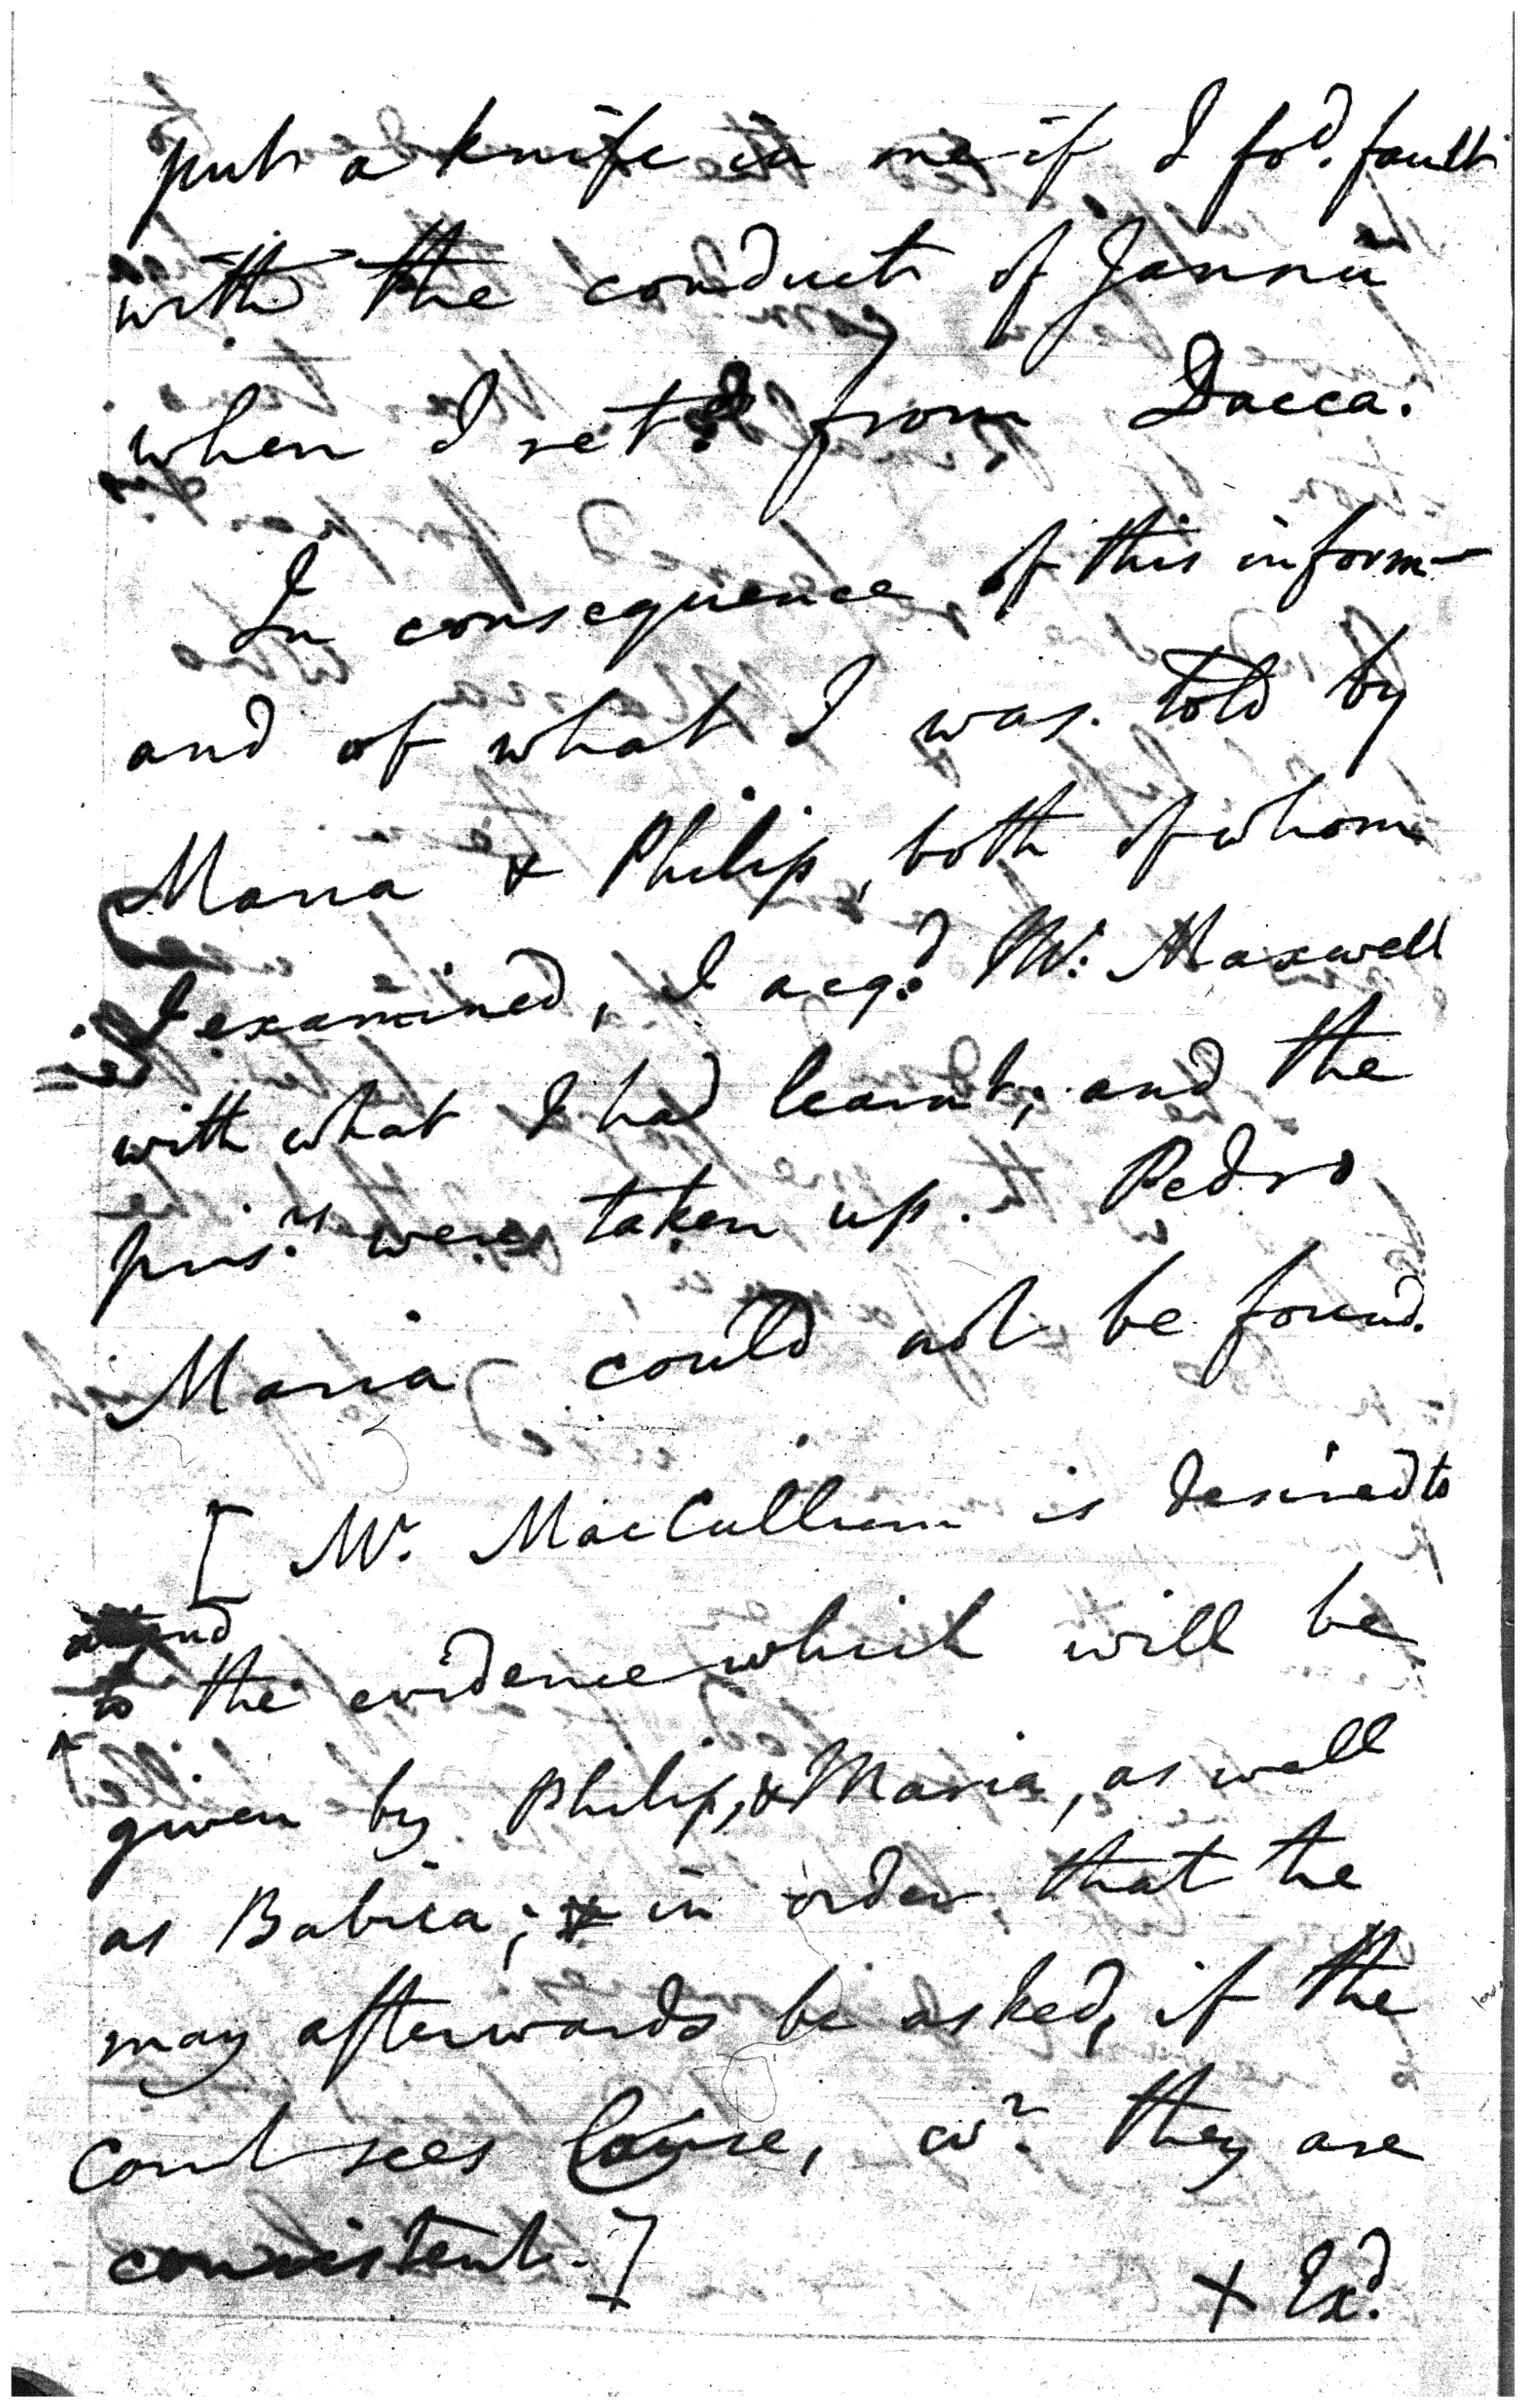 put a knife in me if I fo.^d fault
with the conduct of Jannu
when I ret.^d from Dacca.
In consequence of this inform-
and of what I was told by
Maria & Philip, both of whom
I examined, I acq.^d M.^r Maxwell
with what I had learnt; and the
pris.^rs were taken up. Pedro
Maria could not be found.
[ M.^r MacCullum is desired to
attend
to the evidence which will be
given by Philip, & Maria, as well
as Babica; & in order that he
may afterwards be asked, if the
Court sees Cause, w.^r they are
consistent. ]
+ Ex.^d